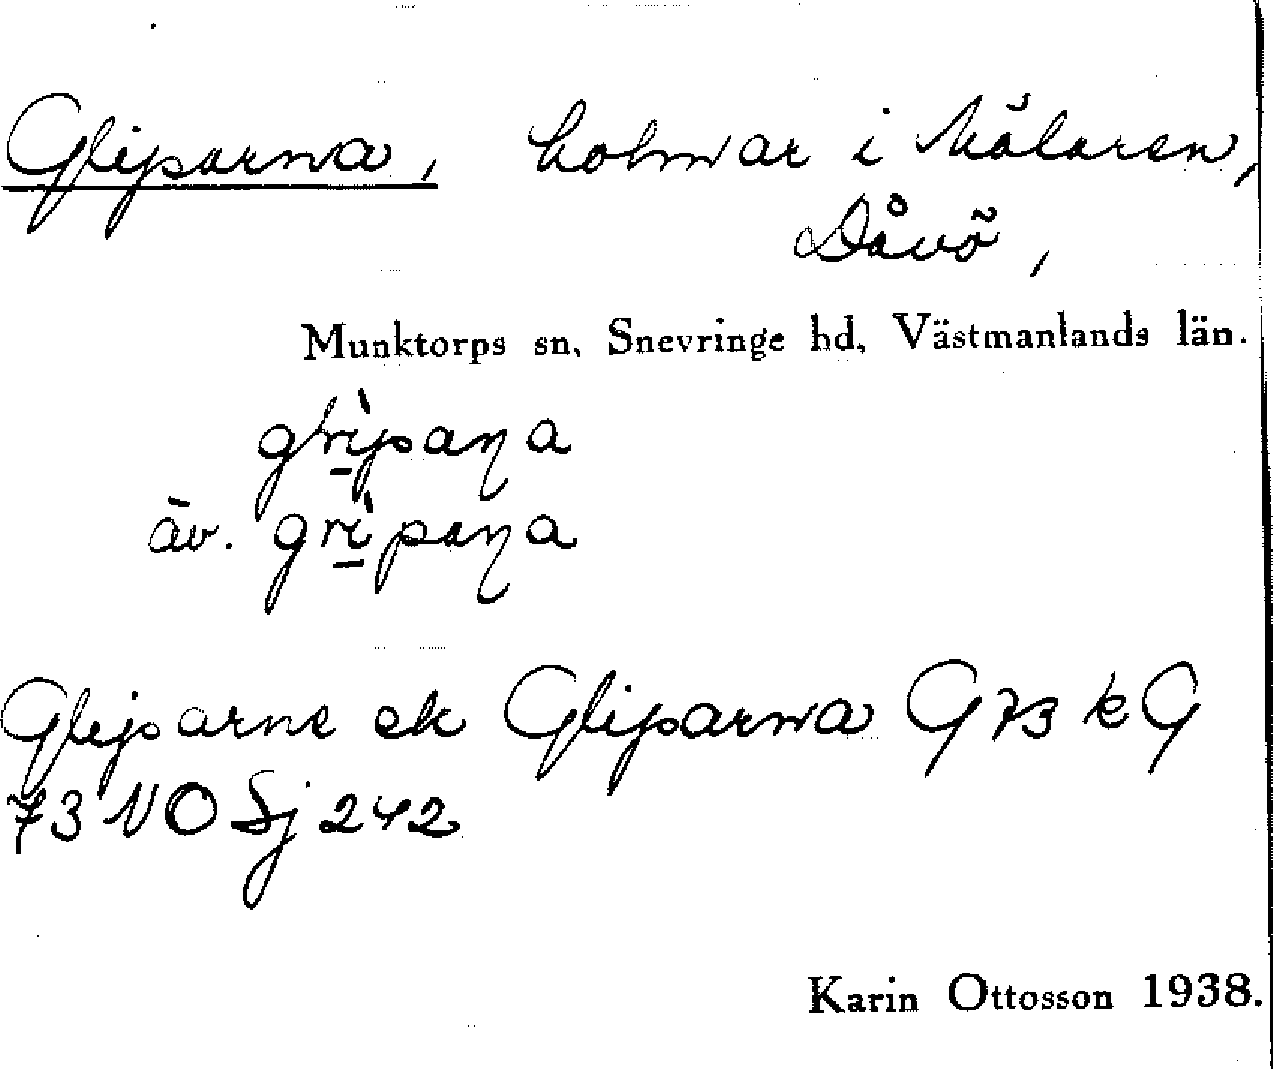 Gliparna, holmar i Mälaren,
Dåvö,
Munktorps sn, Snevringe hd, Västmanlands län.
glrì̱paɳa
äv. grì̱paɳa
Gliparne ek Gliparna G73 k G
73 NO Sj 242
Karin Ottosson 1938.